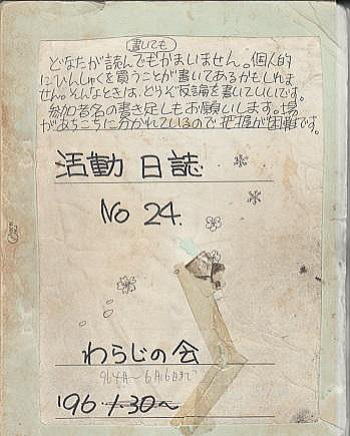 書いても
どなたが読んでもかまいません。個人的
にひんしゅくを買うことが書いてあるかもしれま
せん。そんなときは、どうぞ反論を書いていいです。
参加者名の書き足しもお願いします。場
があちこちに分かれているので把握が困難です。
活動日誌
No 24.
わらじの会
96 4月〜6月6日まで
'96.1.30〜